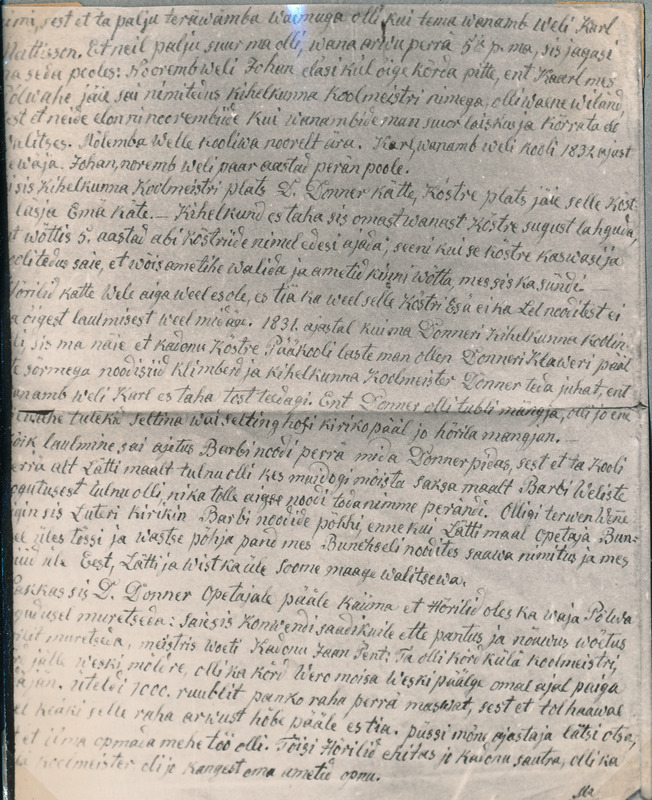 nimi, sest et ta palju teräwämba waimuga olli kui tema wanamb weli Karl
Mattisson. Et neil palju suur ma olli, wana arwu perrä 5 p. ma, sis jagasi
na seda pooles: Nooremb weli Johan elasi kül õige kõrda pitte, ent Kaarl mes
Põlwahe jäie sai nimitedus kihelkunna koolmeistri nimega, olli waene wiland,
sest et neide elon ni noorembide kui wanambide man suur laiskus ja kõrrata elo
walitses. Mõlemba welle kooliwa noorelt ära. Karl, wanamb weli kooli 1832 ajast
ewaja. Johan, noremb weli paar aastad perän poole.
sis Kihelkunna Koolmeistri plats D. Donner kätte, Köstre plats jäie selle Köst.
lasja Emä käte. — Kihelkund es taha sis omast wanast Köstre sugust lahguda,
ent wõttis 5. aastad abi köstride nimul edesi ajada, seeni kui se köstre kaswasi ja
oolitedus saie, et wõis ametihe walida ja ametid kinni wõtta, mes sis ka sündi —
Hõrilid kätte Wele aiga weel es ole, es tiä ka weel selle Köstri Esä ei ka Lel nooditest ei
ka õigest laulmisest weel midägi. 1831. ajastal kui ma Donneri Kihelkunna koolin
olli sis ma näie et kadonu Köstre Pääkooli laste man ollen Donneri Klaweri pääl
sõrmega noodisiid klimberd ja kihelkunna Koolmeister Donner teda juhat, ent
wanamb weli Karl es taha tost teedagi. Ent Donner olli tubli mängja, olli jo ene
Põlwahe tulekä Settina wai Setting hofi kirikopääl jo hõrila mangjan. —
Kõik laulmine sai ajetus Barbi noodi perrä mida Donner pidas, sest et ta kooli
perrä alt Lätti maalt tulnu olli kes muidogi mõista saksa maalt Barbi Weliste
kogutusest tulnu olli, nika tolle aigse noodi todanimme perändi. Olligi terwen Wenne
riigin sis Luteri kirikin Barbi noodide pohhi, enne kui Lätti maal Opetaja Bun=
ge üles tõssi ja wastse põhja pand mes Bunehseli noodites saawa nimitus ja mes
nüüd üle Eest, Lätti ja wist ka üle Soome maage walitsewa.
Pasikas sis D. Donner Opetajale pääle käüma et Hõrilid oles ka waja Põlwa
kogudusel muretseda: saie sis Konwendi saadikuile ette pantus ja nõuwus woetus
hõrilit muretseda, meistris woeti Kadonu Jaan Pent: Ta olli kõrd külä koolmeistri,
jälle weski molere, olli ka kõrd Wero moisa Weski päälge omal ajal paiga
ajan. üteldi 1000. ruublit panko raha perrä maswat, sest et tol haawal
el keäki selle raha arwust hõbe pääle es tia. püssi mõni ajastaja lätsi otsa,
et ilma opmada mehe töö olli. Tõisi Hõrilid ehitas jo kadonu sautra, olli ka
koolmeister oli jo kangest oma ametid opnu.
Ma